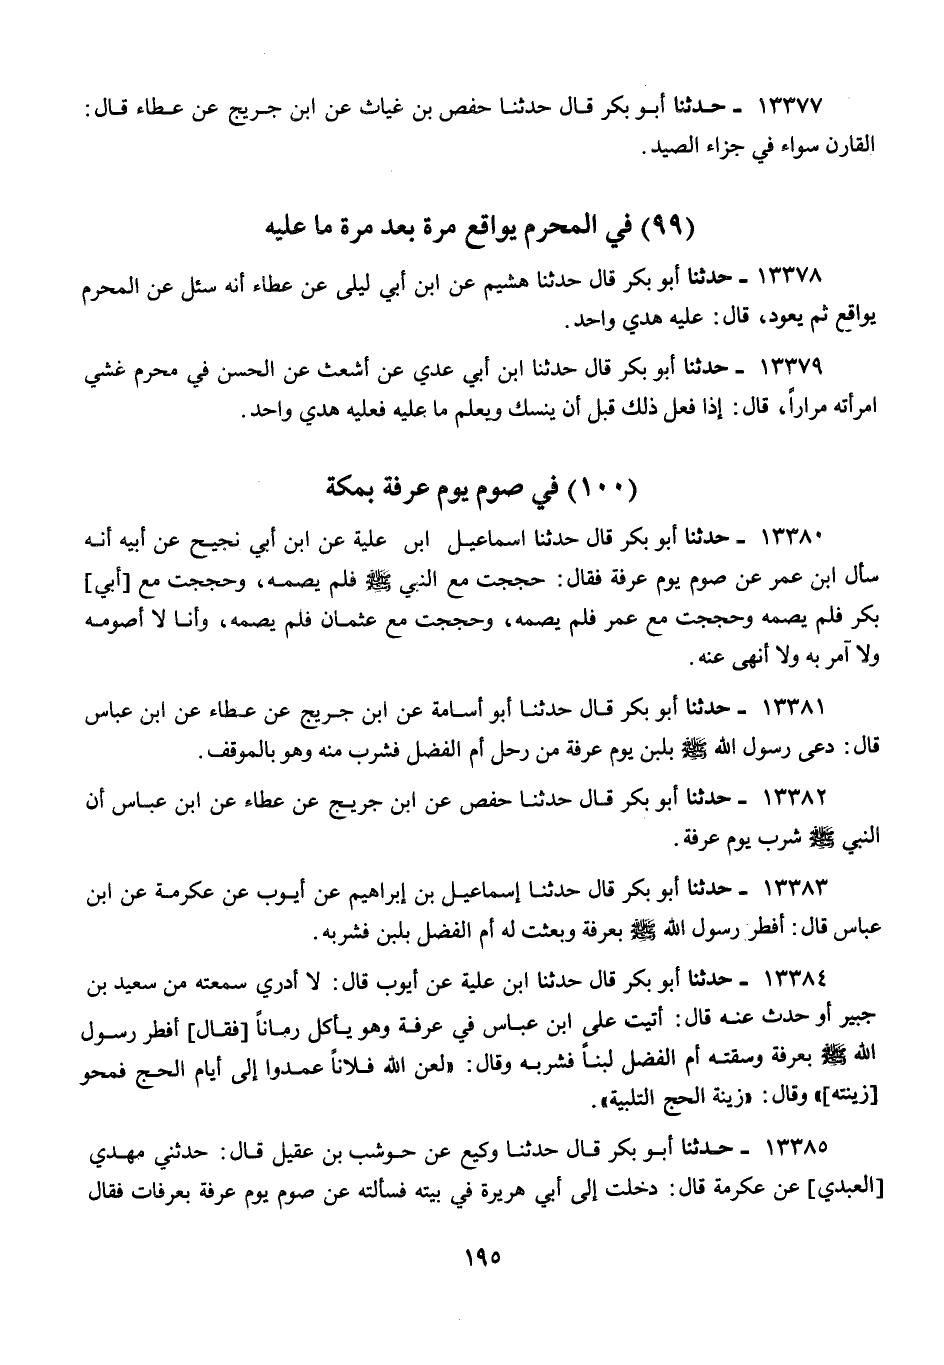 ١٣٣٧٧ - حدثنا أبو بكر قال حدثنا حفص بن غياث عن ابن جريج عن عطاء قال:
القارن سواء في جزاء الصيد.
(٩٩) في المحرم يواقع مرة بعد مرة ما عليه
١٣٣٧٨ - حدثنا أبو بكر قال حدثنا هشيم عن ابن أبي ليلى عن عطاء أنه سئل عن المحرم
يواقع ثم يعود، قال: عليه هدي واحد.
١٣٣٧٩ - حدثنا أبو بكر قال حدثنا ابن أبي عدي عن أشعث عن الحسن في محرم غشي
امرأته مراراً، قال: إذا فعل ذلك قبل أن ينسك ويعلم ما عليه فعليه هدي واحد.
(١٠٠) في صوم يوم عرفة بمكة
١٣٣٨٠ - حدثنا أبو بكر قال حدثنا اسماعيل ابن علية عن ابن أبي نجيح عن أبيه أنه
سأل ابن عمر عن صوم يوم عرفة فقال: حججت مع النبي ﷺ فلم يصمه، وحججت مع [أبي]
بكر فلم يصمه وحججت مع عمر فلم يصمه، وحججت مع عثمان فلم يصمه، وأنا لا أصومه
ولا آمر به ولا أنهى عنه.
١٣٣٨١ - حدثنا أبو بكر قال حدثنا أبو أسامة عن ابن جريج عن عطاء عن ابن عباس
قال: دعى رسول الله ﷺ بلبن يوم عرفة من رحل أم الفضل فشرب منه وهو بالموقف.
١٣٣٨٢ - حدثنا أبو بكر قال حدثنا حفص عن ابن جريج عن عطاء عن ابن عباس أن
النبي ﷺ شرب يوم عرفة.
١٣٣٨٣ - حدثنا أبو بكر قال حدثنا إسماعيل بن إبراهيم عن أيوب عن عكرمة عن ابن
عباس قال: أفطر رسول الله ﷺ بعرفة وبعثت له أم الفضل بلبن فشربه.
١٣٣٨٤ - حدثنا أبو بكر قال حدثنا ابن علية عن أيوب قال: لا أدري سمعته من سعيد بن
جبير أو حدث عنه قال: أتيت على ابن عباس في عرفة وهو يأكل رماناً [فقال] أفطر رسول
الله ﷺ بعرفة وسقته أم الفضل لبناً فشربه وقال: «لعن الله فلاناً عمدوا إلى أيام الحج فمحو
[زينته]» وقال: «زينة الحج التلبية».
١٣٣٨٥ - حدثنا أبو بكر قال حدثنا وكيع عن حوشب بن عقيل قال: حدثني مهدي
[العبدي] عن عكرمة قال: دخلت إلى أبي هريرة في بيته فسألته عن صوم يوم عرفة بعرفات فقال
١٩٥